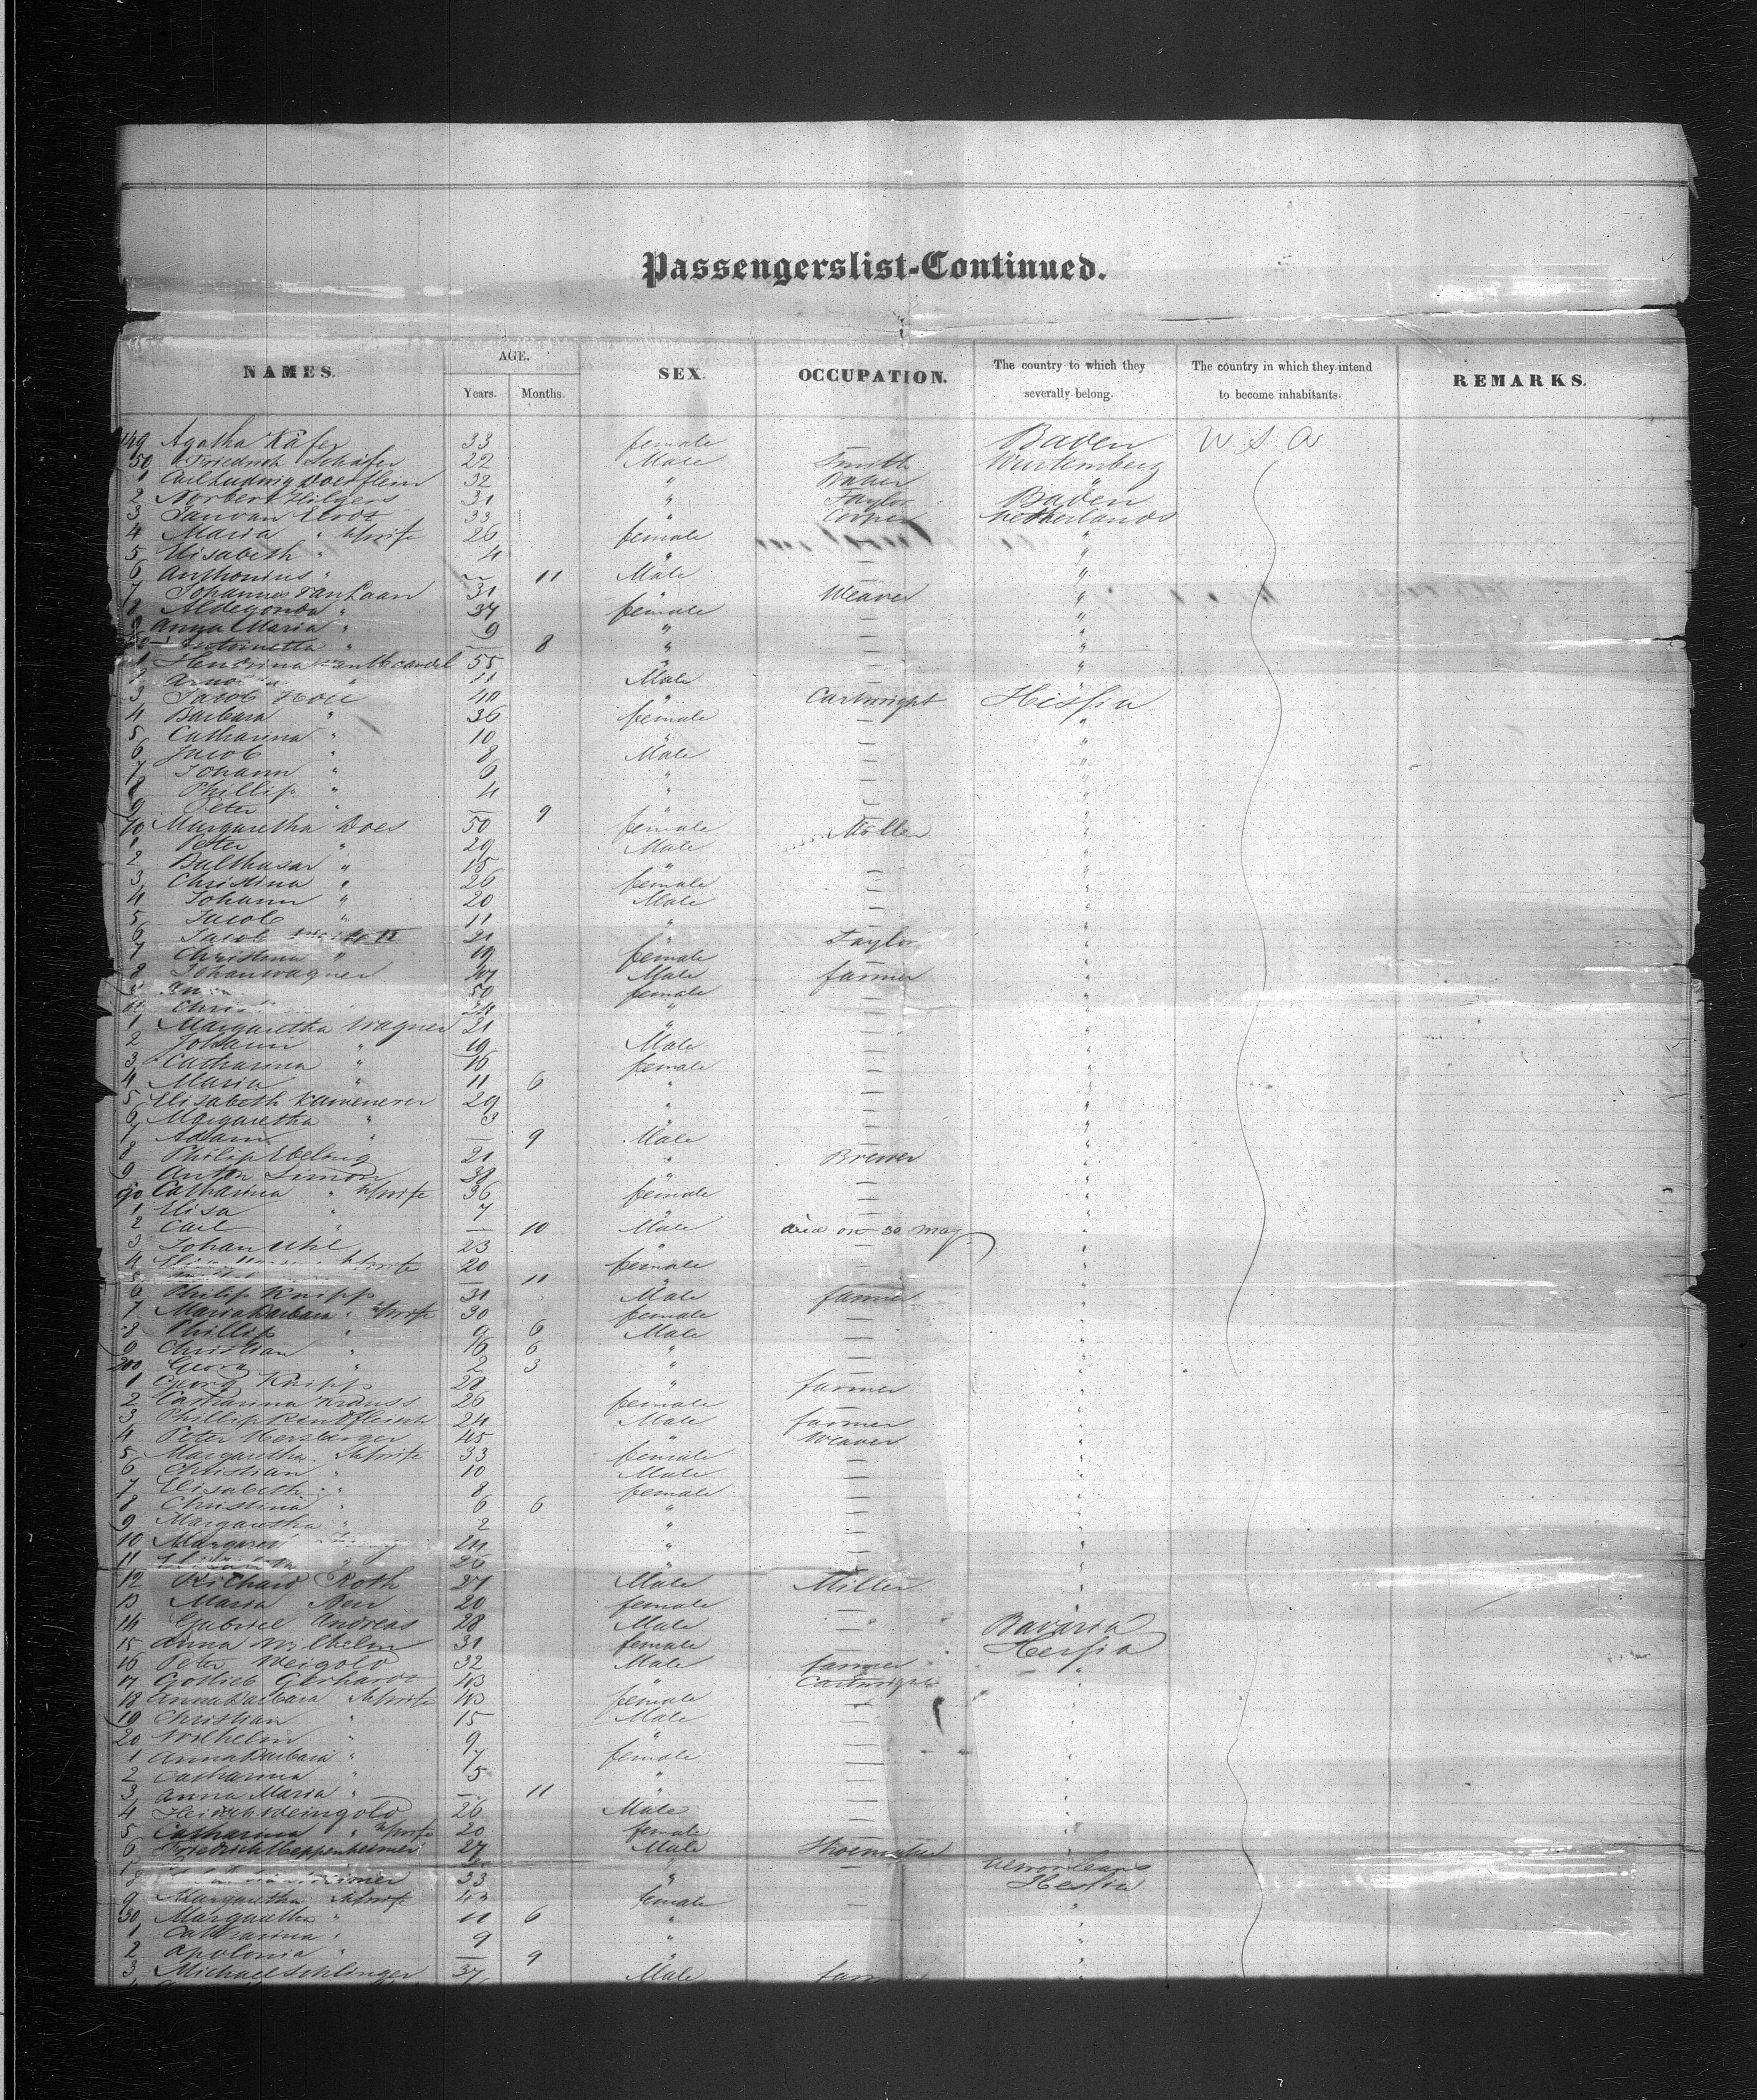 Passengerslist-Continued.
NAMES. AGE. SEX. OCCUPATION. The country to which they severally belong. The country in which they intend to become inhabitants. REMARKS.
Years. Months.
149 Agatha Käfer 33 female — Baden U S A
50 Friedrich Schäfer 22 Male Smith Wurtemberg
1 Carl Ludwig Doerflein 32 " Baker "
2 Norbert Hilgers 31 " Taylor Baden
3 Jan van 33 " Cooper Netherlands
4 Maria " wife 26 female — "
5 Elisabeth " 4 " — "
6 Anthonius " — 11 Male — "
7 Johannes van Laan 31 " Weaver "
8 Aldegonda " 37 female — "
9 Anna Maria " 9 " — "
Antoinetta " — 8 " — "
1 Hendrina van 55 " — "
11 Male — "
3 Jacob 40 " Cartwright Hessia
4 Barbara " 36 female — "
5 Catharina " 10 " — "
6 Jacob " 8 Male — "
7 Johann " 6 " — "
8 Phillip " 4 " — "
9 Peter " — 9 " — "
70 Margaretha Does 50 female — "
1 Peter " 29 Male Möller "
2 Balthasar " 15 " — "
3 Christina " 26 female — "
4 Johann " 20 Male — "
5 Jacob " 11 " — "
6 Jacob 21 " Taylor "
7 Christina " 19 female — "
8 Johan Wagner 47 Male farmer "
50 female — "
24 " — "
1 Margaretha Wagner 21 " — "
2 Johann " 19 Male — "
3 Catharina " 16 female — "
4 Maria " 11 6 " — "
5 Elisabeth Kammerer 29 " — "
6 Margaretha " 3 " — "
7 Adam " — 9 Male — "
8 Philip 21 " Brewer "
9 Anton Simon 38 " — "
90 Catharina " wife 36 female — "
1 Elisa " 7 " — "
2 Carl " — 10 Male died on 30 May "
3 Johan Uhl 23 " — "
4 wife 20 female — "
5 — 11 " — "
6 Philip Knipp 31 Male farmer "
7 Maria Barbara " wife 30 female — "
8 Phillip " 9 6 Male — "
9 Christian " 6 6 " — "
200 Georg " 2 3 " — "
1 Georg Knipp 28 " farmer "
2 Catharina Krauss 26 female — "
3 Phillip Rindfleisch 24 Male farmer "
4 Peter Hersberger 45 " Weaver "
5 Margaretha " wife 33 female — "
6 Christian " 10 Male — "
7 Elisabeth " 8 female — "
8 Christina " 6 6 " — "
9 Margaretha " 2 " — "
10 24 " — "
11 26 " — "
12 Richard Roth 27 Male Miller "
13 Maria 20 female — "
14 Gabriel Andreas 28 Male — Bavaria
15 Anna Wilhelm 31 female — Hessia
16 Peter Weigold 32 Male farmer "
17 Gottlieb Gerhardt 43 " Cartwright "
18 Anna Barbara wife 43 female — "
19 Christian " 15 Male — "
20 Wilhelm " 9 " — "
1 Anna Barbara " 7 female — "
2 Catharina " 5 " — "
3 Anna Maria " — 11 " — "
4 Heinrich Weingold 26 Male — "
5 Catharina " wife 20 female — "
6 Friedrich Heppenheimer 27 Male Shoemaker "
" — New Orleans
8 33 " — Hessia
9 Margaretha wife 43 female — "
30 Margaretha " 11 6 " "
1 Catharina " 9 " "
2 Apolonia " — 9 " "
3 Michael Schlinger 37 Male farmer "